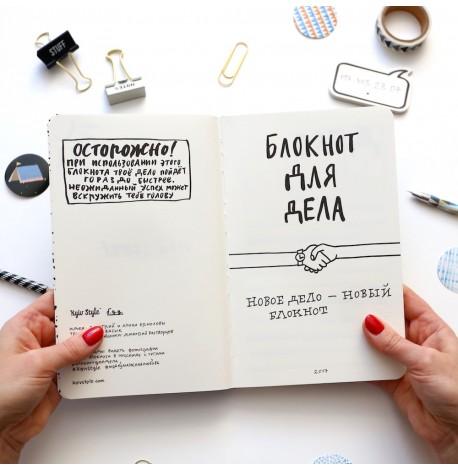 STUFF
ОСТОРОЖНО!
ПРИ ИСПОЛЬЗОВАНИИ ЭТОГО
БЛОКНОТА ТВОЁ ДЕЛО ПОЙДЁТ
ГОРАЗДО БЫСТРЕЕ.
НЕОЖИДАННЫЙ УСПЕХ МОЖЕТ
ВСКРУЖИТЬ ТЕБЕ ГОЛОВУ
Kyiv Style
kyivstyle.com
БЛОКНОТ
ДЛЯ
ДЕЛА
НОВОЕ ДЕЛО — НОВЫЙ
БЛОКНОТ
2017